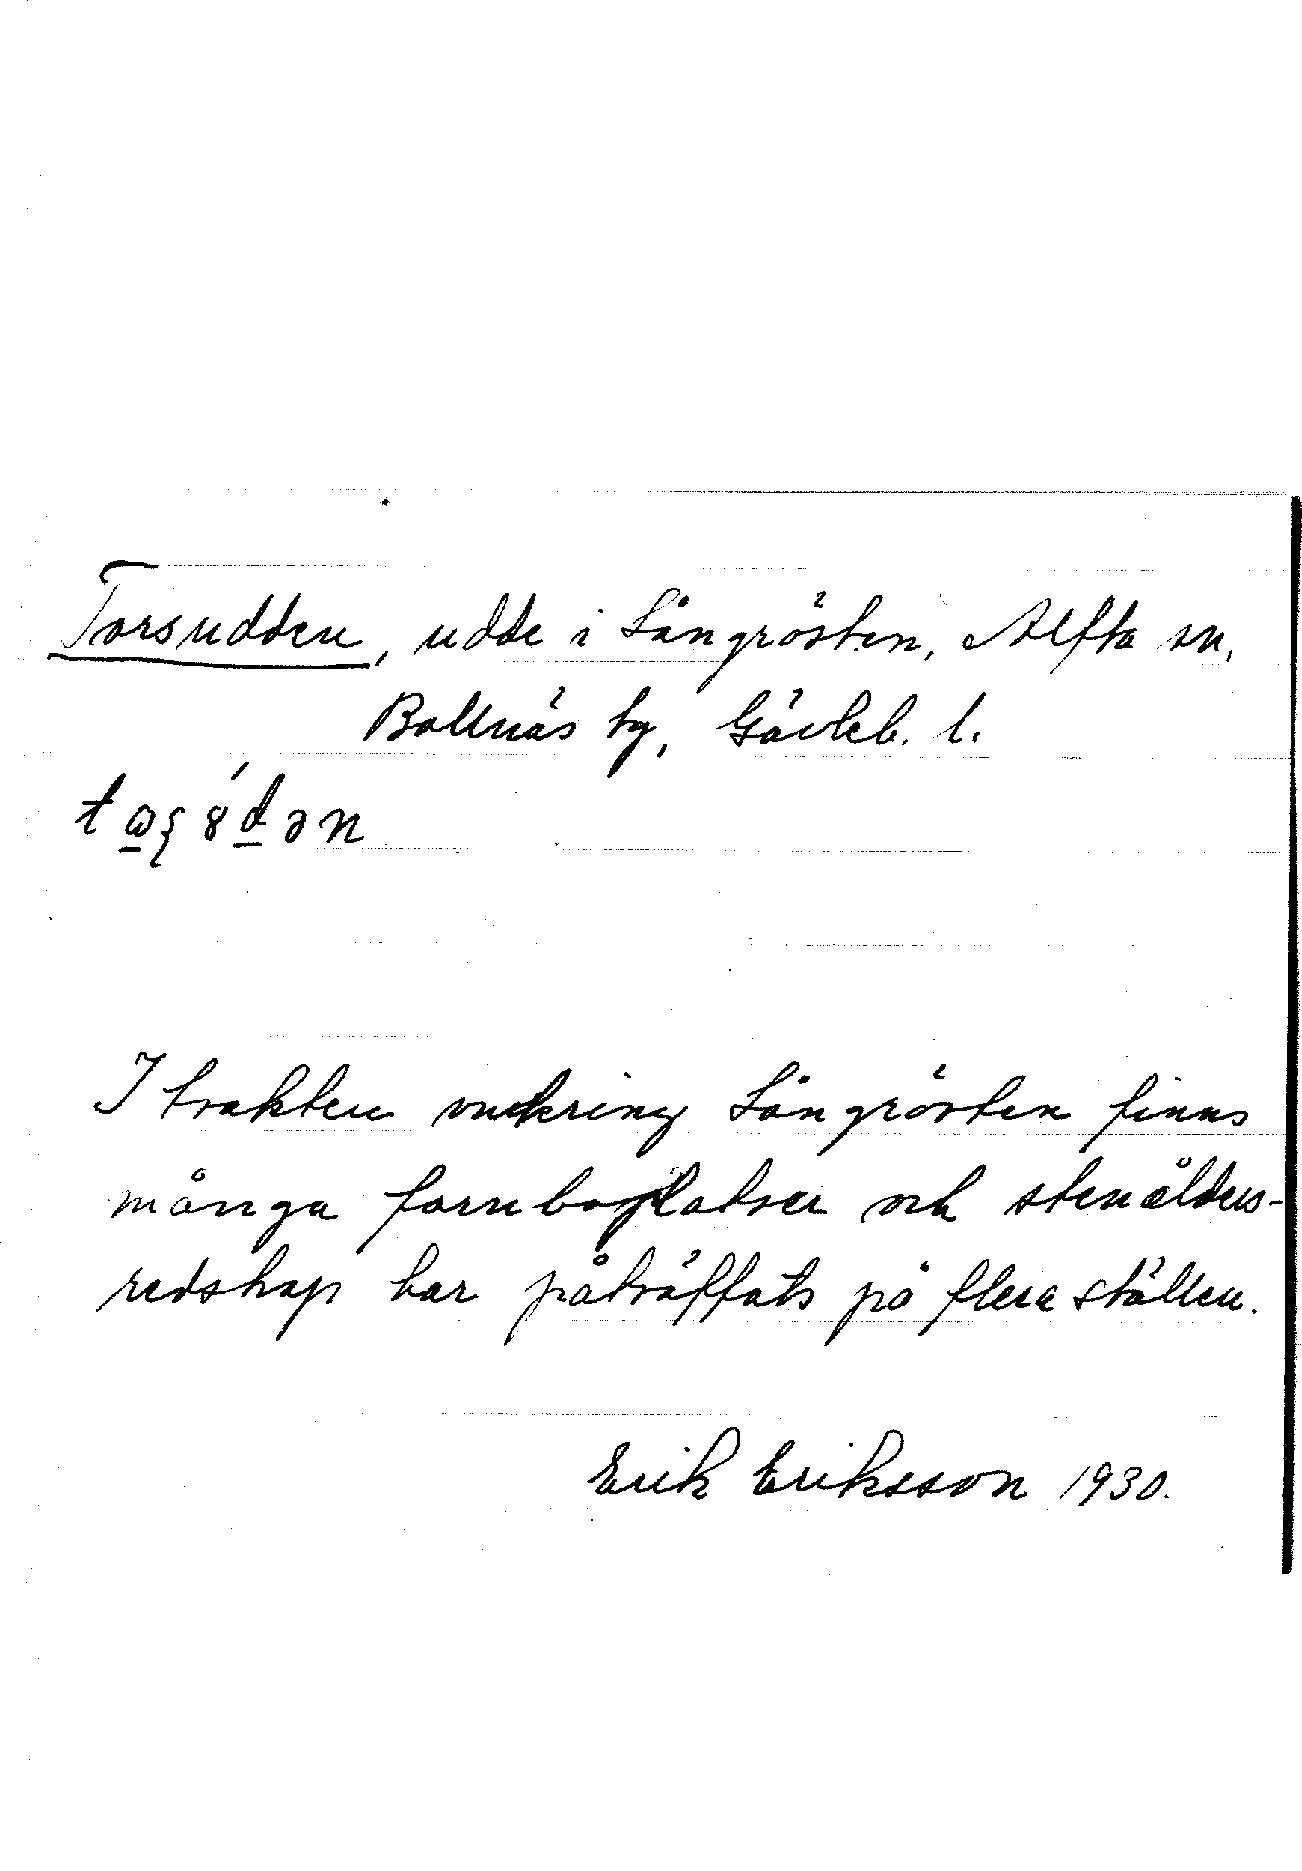 Torsudden, udde i Långrösten, Alfta sn,
Bollnäs tg, Gävleb. l.
I trakten omkring Långrösten finns
många fornboplatser och stenålders-
redskap har påträffats på flera ställen.
Erik Eriksson 1930.